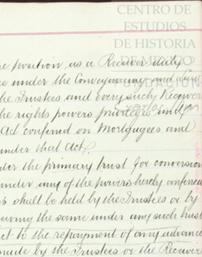 CENTRO DE
ESTUDIOS
DE HISTORIA
DE MEXICO
position as a Receiver duly
under the Conveyancing and
the Trustees and every such Receiver
the rights powers privileges and
Act conferred on Mortgagees and
under that Act.
under the primary trust for conversion
under any of the powers hereby conferred
shall be held by the Trustees or by
the same under any such trust
to the repayment of any advance
made by the Trustees or the Receiver